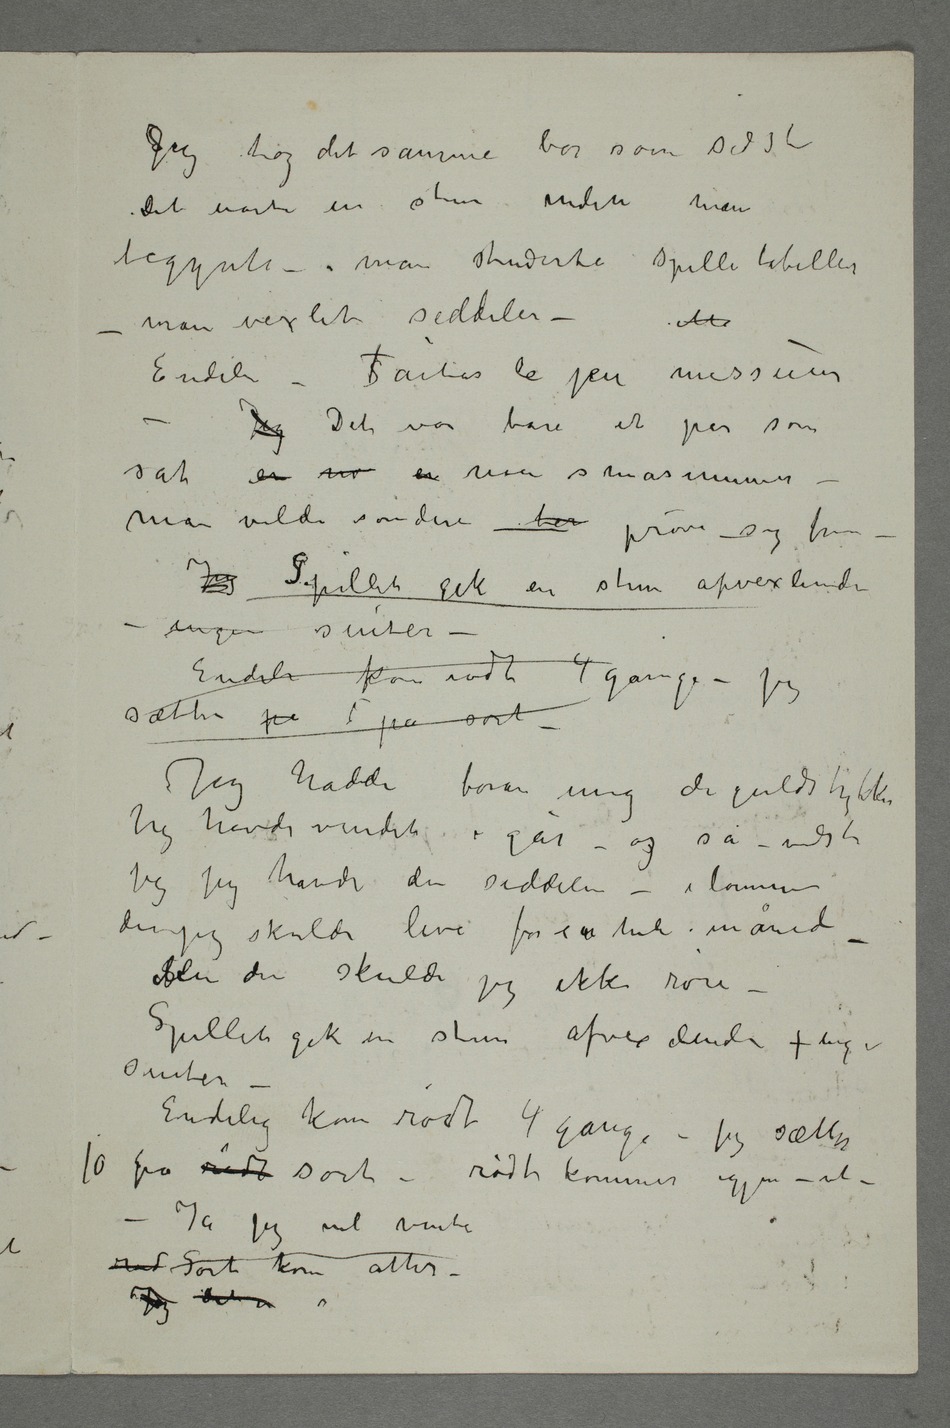 Jeg tog det samme bor som sidst
det varte en stun inden man
begynte – man studerte spilletabeller
– man vexlet seddeler –
Endeli – Faites le jeu messieurs
– Jeg Det var bare et par som
sat en no en noen småsummer –
man vilde sondere – prøve sig frem –
Jeg Spillet gik en stun afvexlende
– ingen suiter –
Endeli kom rødt 4 gange – jeg
sætter på 5 på sort –
Jeg hadde foran mig de guldstykker
jeg havde vundet i går – og så vidste
jeg jeg havde den seddelen – i lommen
den jeg skulde leve for en hel måned –
Men den skulde jeg ikke røre –
Spillet gik en stun afvexlende + inge
suiter –
Endelig kom rødt 4 gange – jeg sætter
10 på rødt sort – rødt kommer igjen – et –
– Ja jeg vil vente
rød Sort kom atter –
Jeg det er